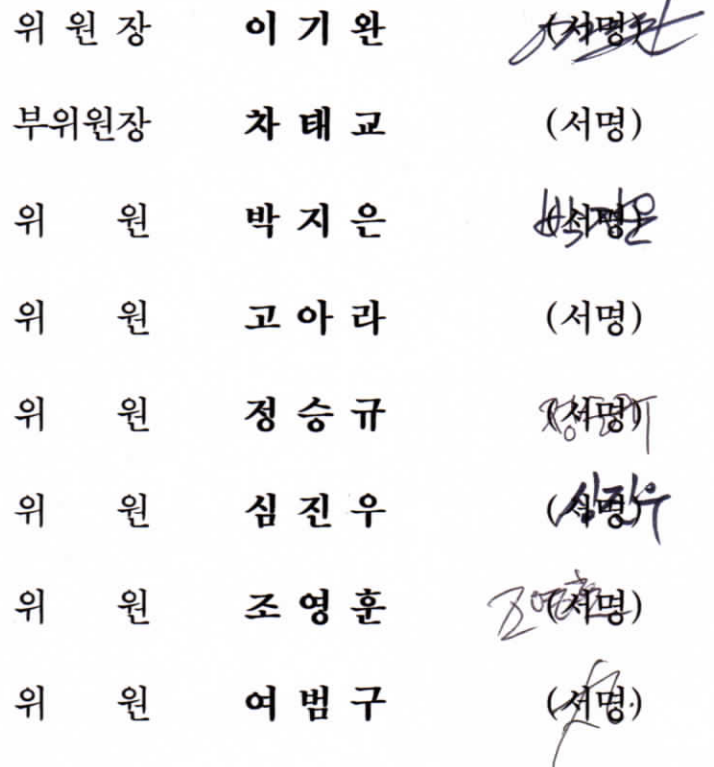 위 원 장 이 기 완 (서명)
부위원장 차 태 교 (서명)
위 원 박 지 은 (서명) 박지은
위 원 고 아 라 (서명)
위 원 정 승 규 (서명)
위 원 심 진 우 (서명) 심진우
위 원 조 영 훈 (서명) 조영훈
위 원 여 범 구 (서명)